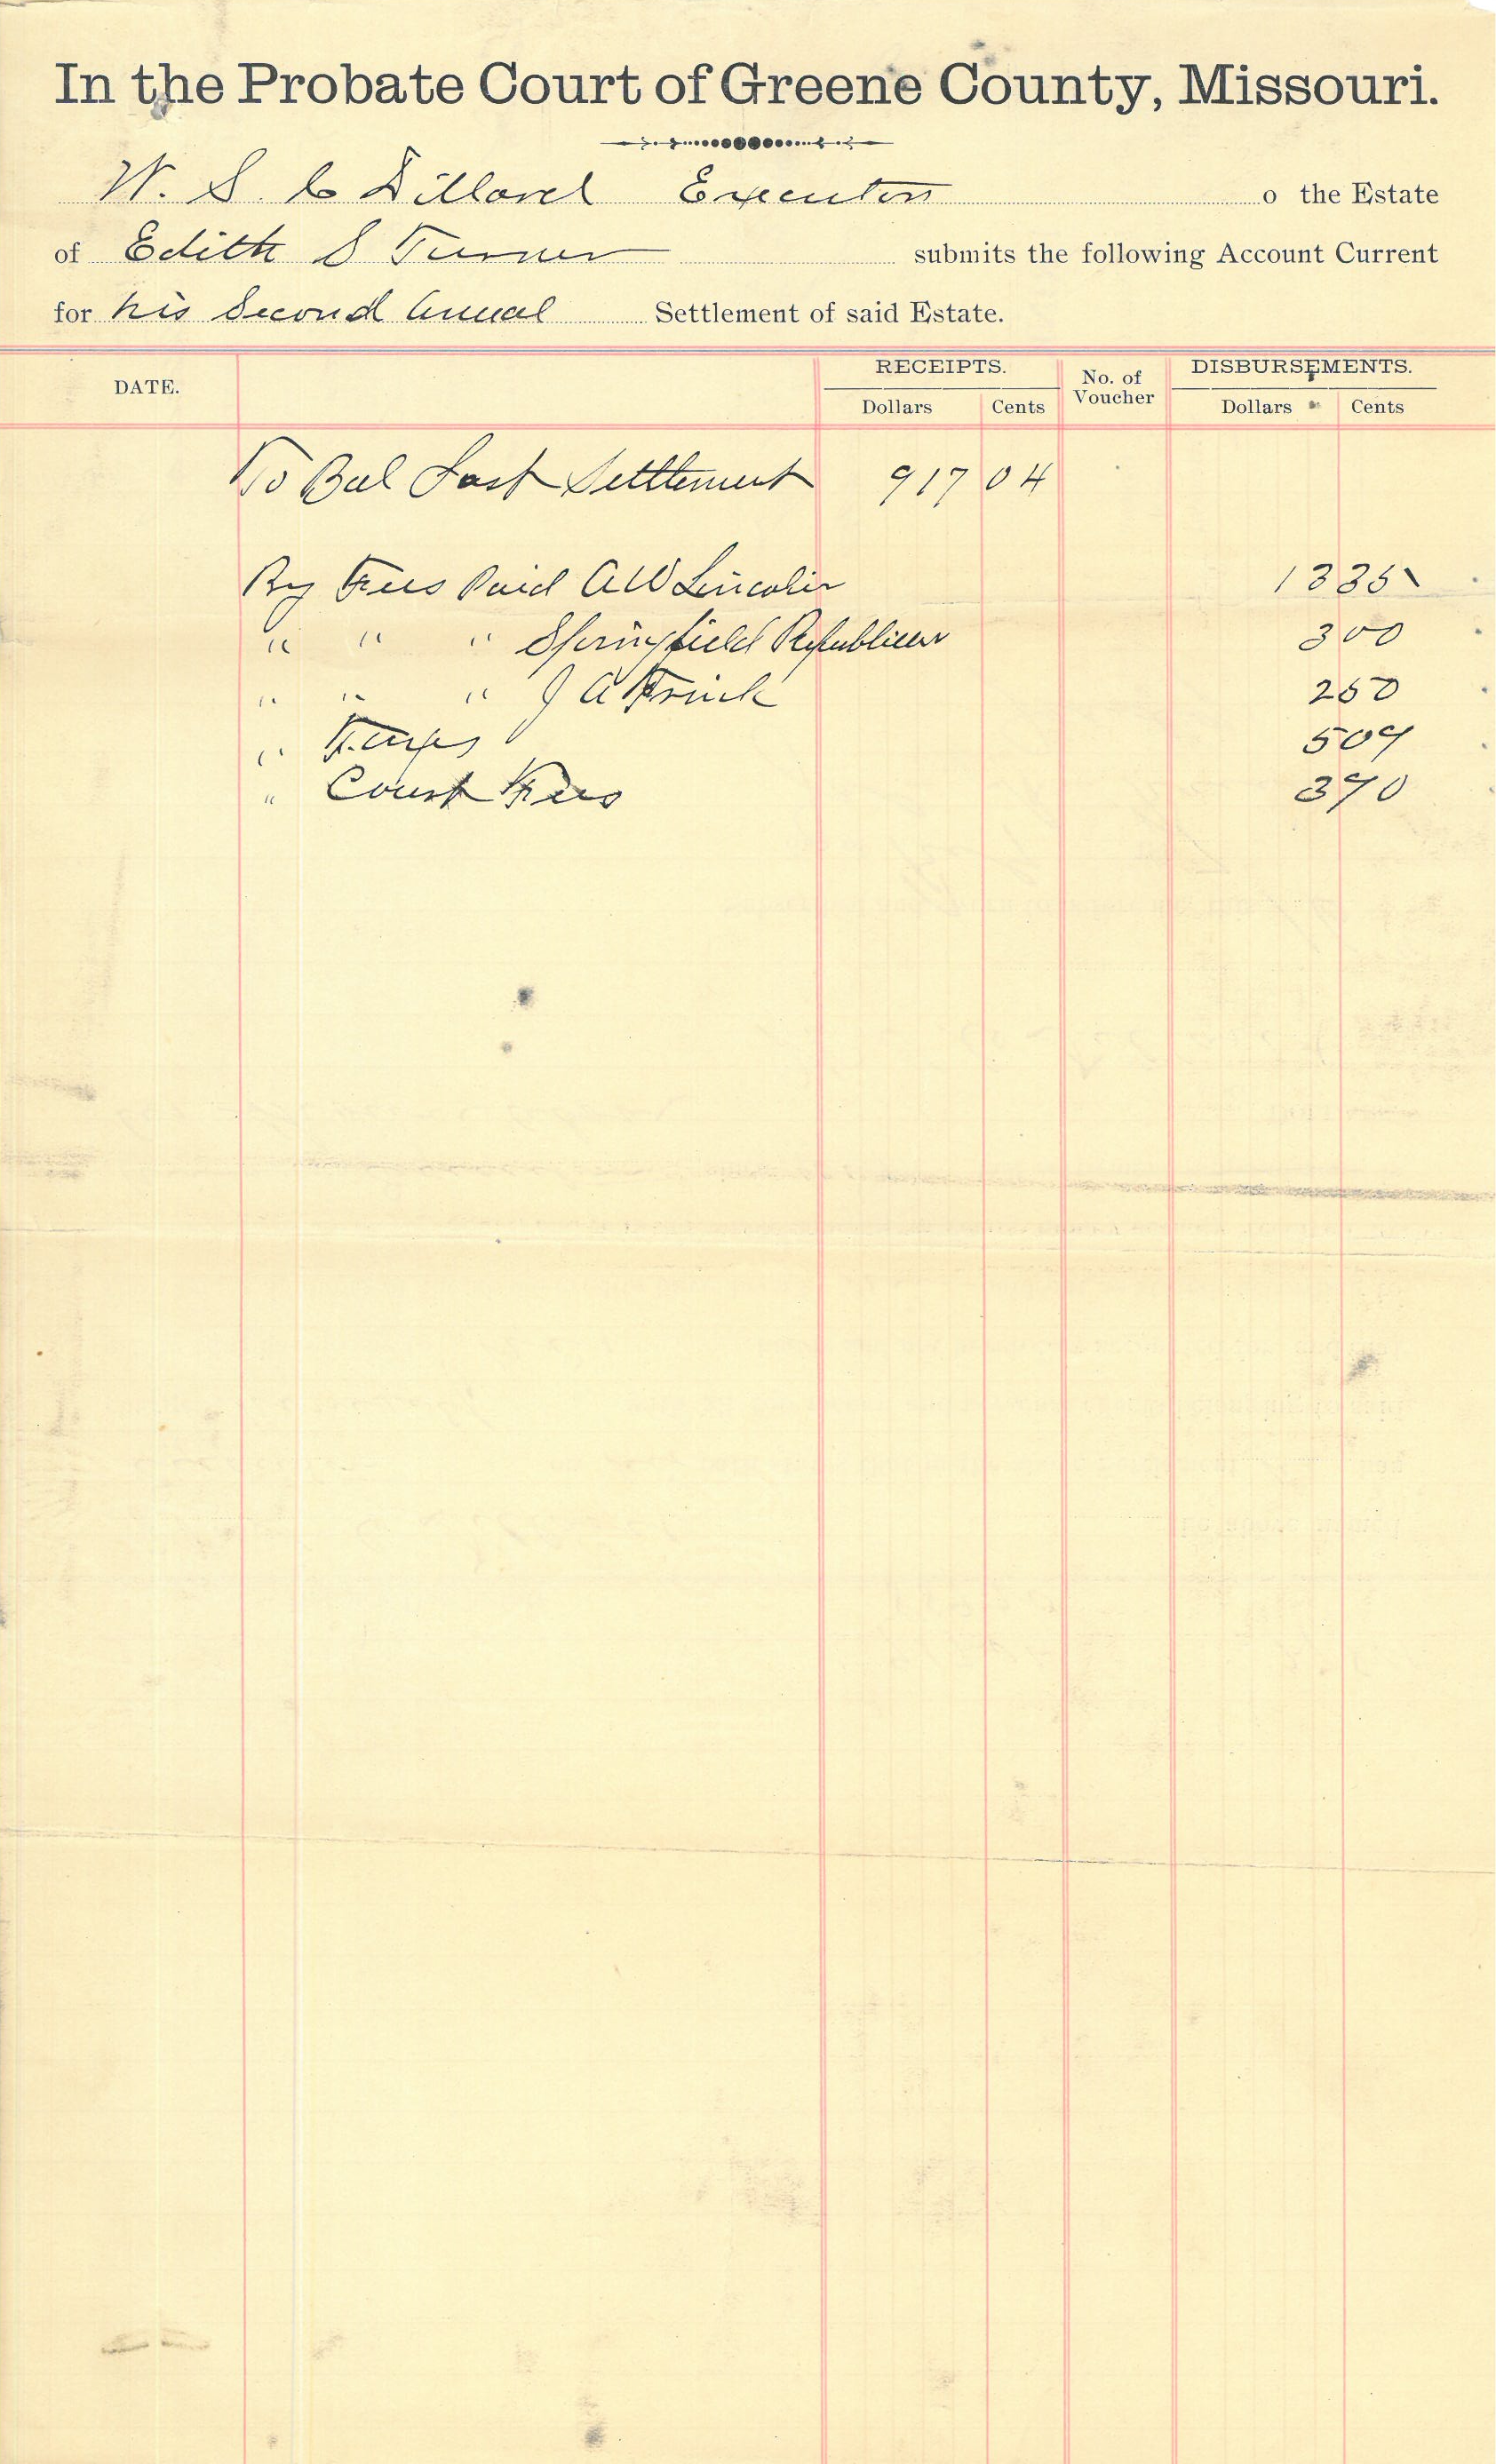 In the Probate Court of Greene County, Missouri.
W. S. C Dillard Executor o the Estate
of Edith S Turner submits the following Account Current
for his Second Annual Settlement of said Estate.
DATE. RECEIPTS. No. of Voucher DISBURSEMENTS.
Dollars Cents Dollars Cents
To Bal Last Settlement 917 04
By Fees Paid A W Lincoln 13 35
" " " Springfield Republican 3 00
" " " J A Frink 2 50
" Taxes 5 09
" Court Fees 3 90